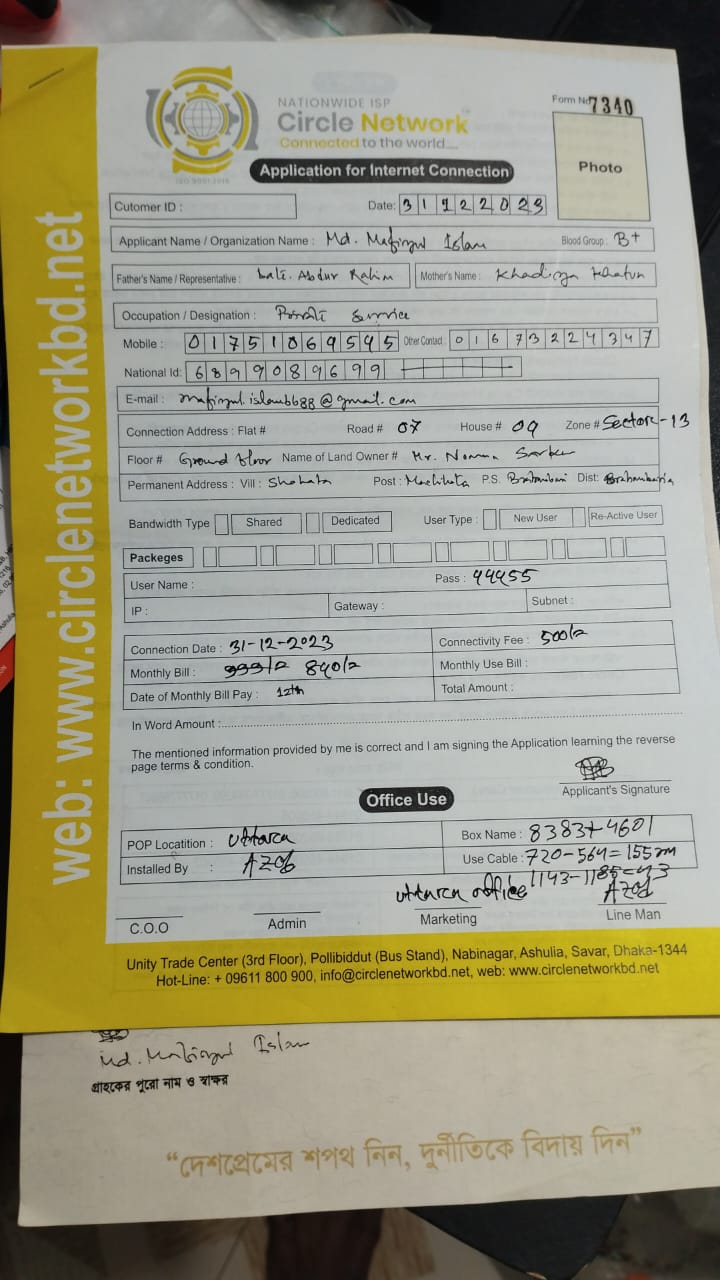 web: www.circlenetworkbd.net
NATIONWIDE ISP
Circle Network
Connected to the world....
ISO 9001:2015
Form No 7340
Photo
Application for Internet Connection
Cutomer ID :
Date: 31122023
Applicant Name / Organization Name : Md. Mafizul Islam Blood Group : B+
Father's Name / Representative : Late. Abdur Rahim Mother's Name : Khadiza Khatun
Occupation / Designation : Private Service
Mobile : 01751069545 Other Contact : 01673224347
National Id: 6899089699
E-mail : mafizul.islam6688@gmail.com
Connection Address : Flat # Road # 07 House # 09 Zone # Sector-13
Floor # Ground floor Name of Land Owner # Mr. Sarker
Permanent Address : Vill : Shahata Post : P.S. Dist:
Bandwidth Type Shared Dedicated User Type : New User Re-Active User
Packeges
User Name : Pass : 44455
IP : Gateway : Subnet :
Connection Date : 31-12-2023 Connectivity Fee : 500/=
Monthly Bill : 999/= 840/= Monthly Use Bill :
Date of Monthly Bill Pay : 12th Total Amount :
In Word Amount :
The mentioned information provided by me is correct and I am signing the Application learning the reverse
page terms & condition.
Applicant's Signature
Office Use
POP Locatition : Uttara Box Name : 8383+4601
Installed By : Azad Use Cable : 720-564=155m
1143-1185=43
Uttara office Azad
C.O.O Admin Marketing Line Man
Unity Trade Center (3rd Floor), Pollibiddut (Bus Stand), Nabinagar, Ashulia, Savar, Dhaka-1344
Hot-Line: + 09611 800 900, info@circlenetworkbd.net, web: www.circlenetworkbd.net
Md. Mafizul Islam
গ্রাহকের পুরো নাম ও স্বাক্ষর
“দেশপ্রেমের শপথ নিন, দুর্নীতিকে বিদায় দিন”